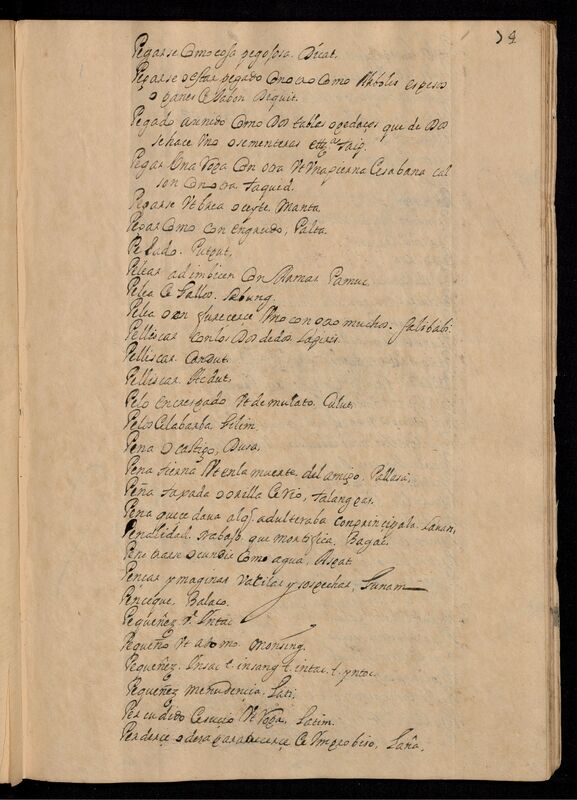 74
Pegarse como cosa pegosa. Dicat.
Pegarse o estar pegado con otro como Arboles espesos
o panes de Jabon Dequit.
Pegado o unido como Dos tablas o pedaços que de Dos
se hace Uno o sementeras Saip.
Pegar Una Ropa con otra Vt Una pierna de sabana cal
son con otra taquid.
Pegarse Vt brea o ceyte. Manta
Pegar Como con engrudo, Palta.
Peludo. Putput,
Pelear adimbicen con Armas Pamuc.
Pelea de Gallos. Sabung.
Pelea o en furecerce Uno con otro muchos. Salibabi.
Pelliscar con los Dos dedos.
Pelliscar. Condut.
Pelliscar.
Pelo encrespado Vt de mulato. Culut,
Pelos de la barba, Silim.
Pena o castigo, Dusa,
Pena tierna Vt en la muerte del amigo. Pallasa,
Peña tajada o orilla de rio, talangcas.
Pena que ce dava al q. adulteraba con principala.
Penalidad. trabajo que mortifica, Bagac.
Penetrarse o cundir como agua, Aspat
Pencar y maginar Vacilar y sospechar, Sunam
Penceque, Balaco.
Pequeñez V. Intac
Pequeño Vt atomo. Monsing.
Pequeñez. Insac t. insang t. intac. t. yntoc.
Pequeñez menudencia, Lati,
Percudido Ce sucio Vt Ropa, Latim.
Perderçe o desaparecerce Ce Improbiso, Laña,